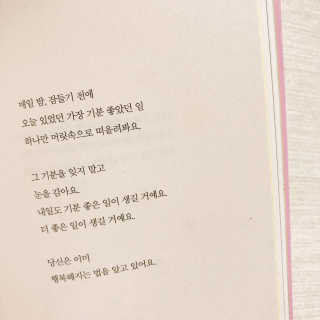 매일 밤, 잠들기 전에
오늘 있었던 가장 기분 좋았던 일
하나만 머릿속으로 떠올려봐요.
그 기분을 잊지 말고
눈을 감아요.
내일도 기분 좋은 일이 생길 거예요.
더 좋은 일이 생길 거예요.
당신은 이미
행복해지는 법을 알고 있어요.